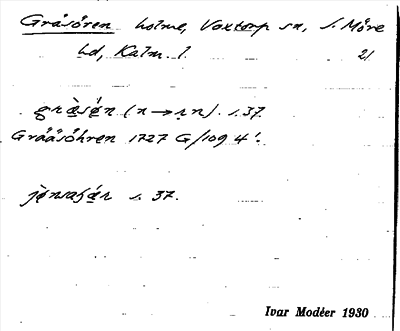 Gråsören holme, Voxtorp sn, S. Möre
hd, Kalm. l. 21
(n → n). s. 37.
Grååsöhren 1727 G/109 4¹.
s. 37.
Ivar Modéer 1930